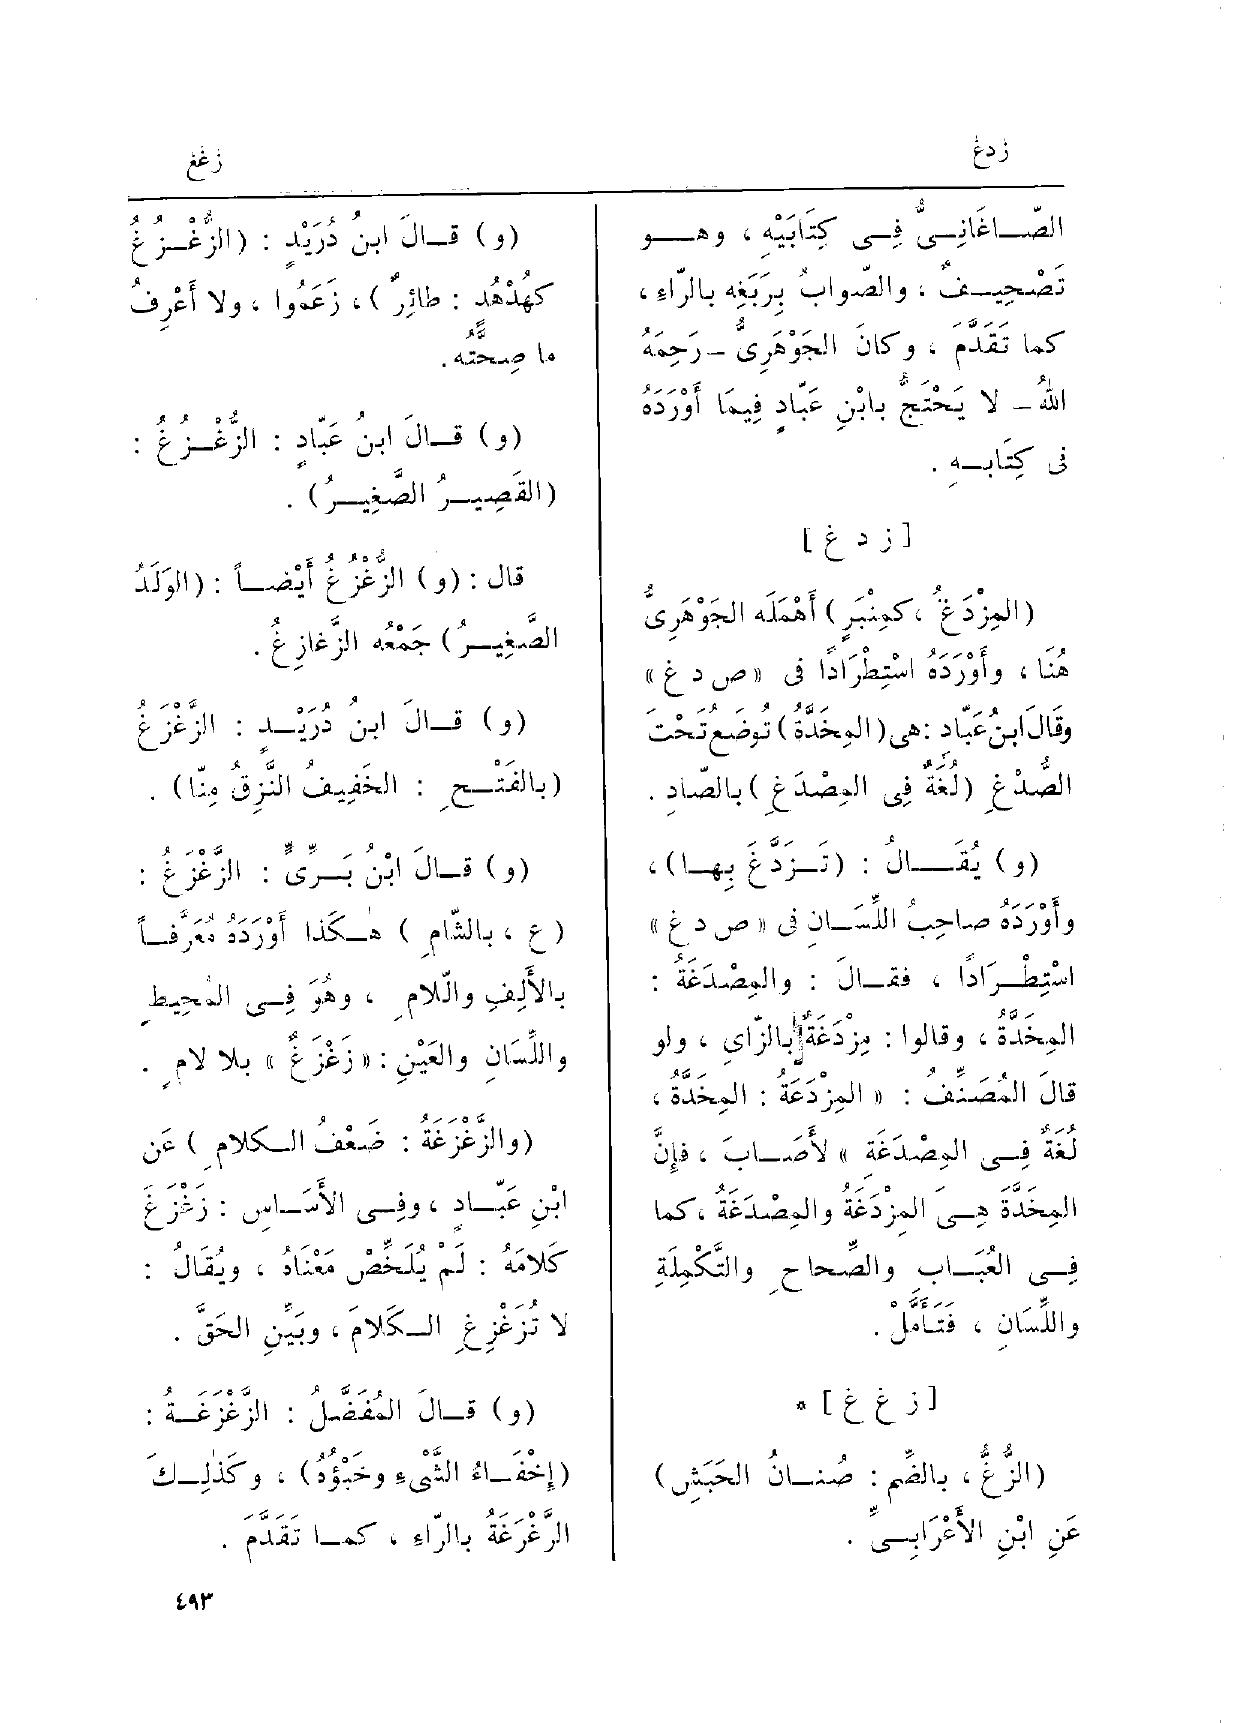 زدغ
زغغ
الصّـاغَانِـىُّ فِـى كِتَابَيْهِ ، وهـو
تَصْحِيـفٌ ، والصّوابُ بِرَبَغِه بالرّاءِ ،
كما تَقَدَّمَ ، وكانَ الجَوْهَرِىُّ -رَحِمَهُ
اللهُ- لا يَحْتَجُّ بابْنِ عَبّادٍ فِيمَا أَوْرَدَهُ
فى كِتَابِـهِ .
[ ز د غ ]
(المِزْدَغُ ، كمِنْبَرٍ) أَهْمَلَه الجَوْهَرِىُّ
هُنَا ، وأَوْرَدَهُ اسْتِطْرَادًا فى «ص د غ»
وقَالَ ابنُ عَبّادٍ :هى (المِخَدَّةُ) تُوضَعُ تَحْتَ
الصُّدْغِ (لُغَةٌ فِى المِصْدَغِ ) بالصّادِ .
(و) يُقَـالُ : (تَـزَدَّغَ بِهـا) ،
وأَوْرَدَهُ صاحِبُ اللِّسَـانِ فى « ص د غ »
اسْتِطْـرَادًا ، فقـالَ : والمِصْدَغَةُ :
المِخَدَّةُ ، وقالوا : مِزْدَغَةٌ بالزّاىِ ، ولو
قالَ المُصَنِّفُ : « المِزْدَغَةُ : المِخَدَّةُ ،
لُغَةٌ فِـى المِصْدَغَةِ » لأَصَـابَ ، فإِنَّ
المِخَدَّةَ هِـىَ المِزْدَغَةُ والمِصْدَغَةُ ، كما
فِـى العُبَـابِ والصِّحاحِ والتَّكْمِلَةِ
واللِّسَانِ ، فتَـأَمَّلْ .
[ ز غ غ ] *
(الزُّغُّ ، بالضَّمِّ : صُنـانُ الحَبَشِ)
عَنِ ابْنِ الأَعْرَابِـىِّ .
(و) قـالَ ابنُ دُرَيْدٍ : (الزُّغْـزُغُ
كهُدْهُدٍ : طائِرٌ ) ، زَعَمُوا ، ولا أَعْرِفُ
ما صِحَّتُه .
(و) قـالَ ابنُ عَبّادٍ : الزُّغْـزُغُ :
(القَصِيـرُ الصَّغِيـرُ) .
قال : (و) الزُّغْزُغُ أَيْضـاً : (الوَلَدُ
الصَّغِيـرُ ) جَمْعُه الزَّغازِغُ .
(و) قـالَ ابنُ دُرَيْـدٍ : الزَّغْزَغُ
(بالفَتْـحِ : الخَفِيفُ النَّزِقُ مِنّا) .
(و) قـالَ ابْنُ بَـرِّىٍّ : الزَّغْزَغُ :
( ع ، بالشّامِ ) هـٰكَذا أَوْرَدَهُ مُعَرَّفـاً
بالأَلِفِ والّلامِ ، وهُوَ فِـى المُحِيطِ
واللِّسَانِ والعَيْنِ : « زَغْزَغٌ » بلا لامٍ .
(والزَّغْزَغَةُ : ضَعْفُ الـكَلامِ ) عَن
ابْنِ عَبّـادٍ ، وفِـى الأَسَـاسِ : زَغْزَغَ
كَلامَهُ : لَمْ يُلَخِّصْ مَعْنَاهُ ، ويُقَالُ :
لا تُزَغْزِغِ الـكَلامَ ، وبَيِّنِ الحَقَّ .
(و) قـالَ المُفَضَّلُ : الزَّغْزَغَـةُ :
(إِخْفَـاءُ الشَّىْءِ وخَبْؤُهُ) ، وكَذٰلِـكَ
الرَّغْرَغَةُ بالرّاءِ ، كمـا تَقَدَّمَ .
٤٩٣